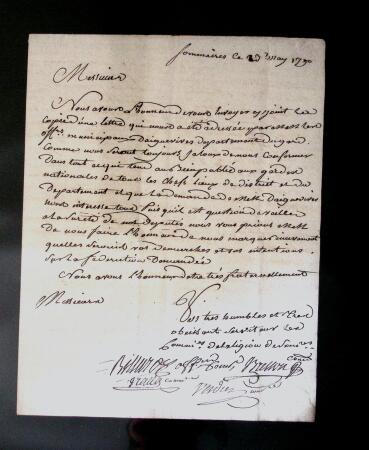 Sommières ce 29 may 1790
Messieurs
Nous avons l'honneur de vous envoyer cy joint la
copie d'une lettre qui nous a été adressée par Messrs les
offers municipaux d'aiguesvives departement du gard
comme nous serons toujours jaloux de nous conformer
dans tout ce qui tient aux gardes
nationales de tous les chefs lieux de district et du
departement et que la demande de Mrs d'aiguesvives
nous interesse tous puisqu'il est question de veiller
a la sureté de nos deputés nous vous prions Mrs
de nous faire l'honneur de nous marquer
quelles seront vos demarches et vos intentions
sur la federation demandée
Nous avons l'honneur d'etre très fraternellement
Messieurs
Vos très humbles et très
obeissant serviteur les
Commres de la legion de